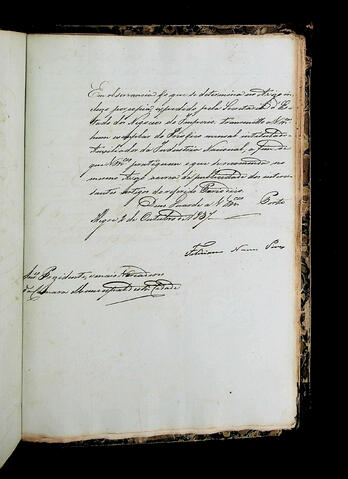 Em observancia do que se determina no Artigo in
cluso por copia expedido pela Secretaria d'Es
tado dos Negocios do Imperio transmitto a Vmces
hum exemplar do Periodico mensal intitulado
Auxiliador da Industria Nacional, a fim de
que Vmces ponhão em o que se recomenda no
mesmo acerca da publicidade dos interes
santes artigos do referido Periodico.
Deos Guarde a Vmces Porto
Alegre 2 de Outubro de 1837.
Feliciano Nunes Pires
Snres Presidente, e mais Vereadores
da Camara Municipal desta Cidade